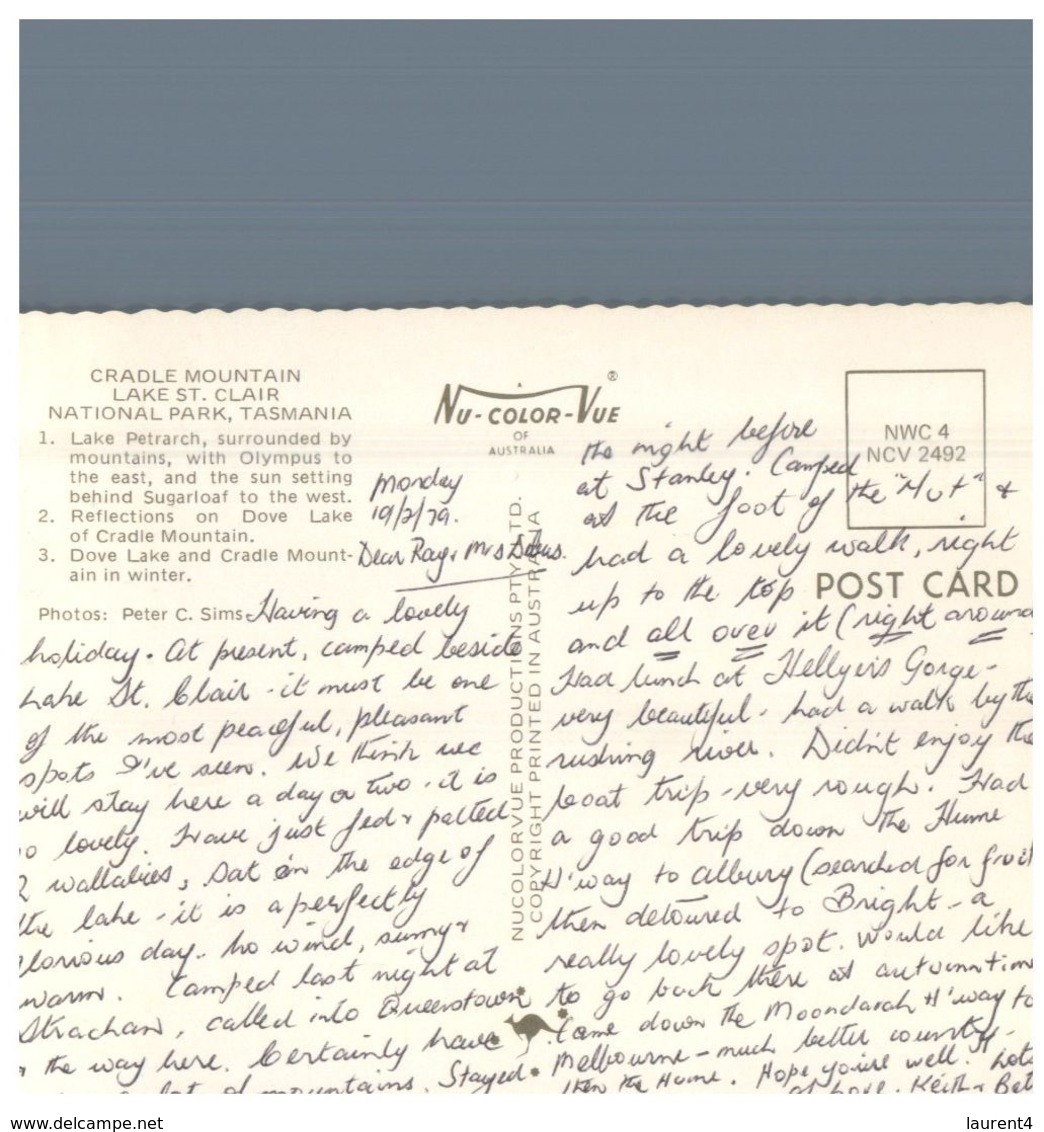 CRADLE MOUNTAIN
LAKE ST. CLAIR
NATIONAL PARK, TASMANIA
1. Lake Petrarch, surrounded by
mountains, with Olympus to
the east, and the sun setting
behind Sugarloaf to the west.
2. Reflections on Dove Lake
of Cradle Mountain.
3. Dove Lake and Cradle Mount-
ain in winter.
Photos: Peter C. Sims
A
NU-COLOR-VUE ®
OF
AUSTRALIA
NUCOLORVUE PRODUCTIONS PTY. LTD.
COPYRIGHT PRINTED IN AUSTRALIA
NWC 4
NCV 2492
POST CARD
Monday
19/2/79.
Dear Ray & Mrs
Having a lovely
holiday. At present, camped beside
Lake St. Clair - it must be one
of the most peaceful, pleasant
spots I've seen. We think we
will stay here a day or two - it is
so lovely. Have just fed & patted
2 wallabies, sat on the edge of
the lake - it is a perfectly
glorious day - no wind, sunny &
warm. Camped last night at
Strachan, called into Queenstown
the way here. Certainly have
lot of mountains. Stayed
the night before
at Stanley. Camped
at the foot of the "Nut" &
had a lovely walk, right
up to the top
and all over it (right around
Had lunch at Hellyers Gorge -
very beautiful - had a walk by the
rushing river. Didn't enjoy the
boat trip - very rough. Had
a good trip down the Hume
H'way to Albury (searched for fruit
then detoured to Bright - a
really lovely spot. Would like
to go back there at autumntime
Came down the Moondarah H'way to
Melbourne - much better country -
then the Hume. Hope you're well. Lots
of love. Keith & Bet
www.delcampe.net
laurent4